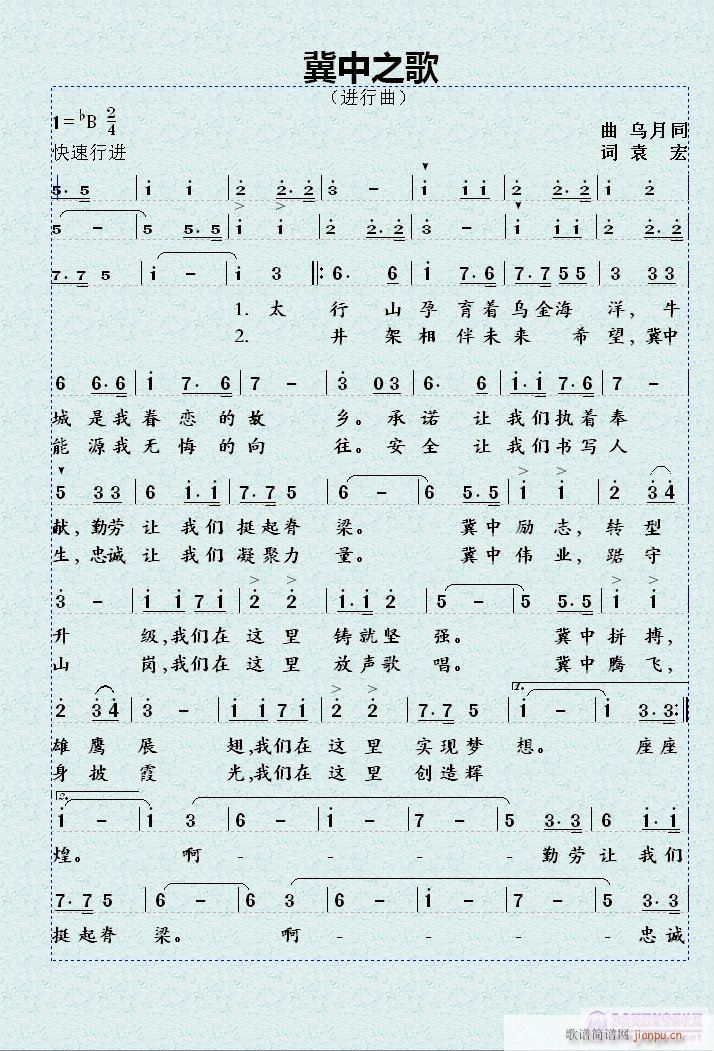 冀中之歌
（进行曲）
1=♭B 2/4
曲 乌月同
快速行进
词 袁 宏
5. 5 | i i | 2 2. 2 | 3 － | i i i | 2 2. 2 | i 2
5 － | 5 5. 5 | i i | 2 2. 2 | 3 － | i i i | 2 2. 2
7. 7 5 | i － | i 3 ‖: 6. 6 | i 7. 6 | 7. 7 5 5 | 3 3 3
1. 太 行 山孕 育着乌金海 洋, 牛
2. 井 架相 伴未来 希望,冀中
6 6. 6 | i 7. 6 | 7 － | 3 0 3 | 6. 6 | i. i 7. 6 | 7 －
城 是我 眷 恋 的故 乡。 承诺 让 我们执着奉
能 源我 无 悔 的向 往。安全 让 我们书写人
5 3 3 | 6 i. i | 7. 7 5 | 6 － | 6 5. 5 | i i | 2 3 4
献,勤劳 让 我们 挺起脊 梁。 冀中 励志, 转型
生,忠诚 让 我们 凝聚力 量。 冀中 伟业, 踞守
3 － | i i 7 i | 2 2 | i. i 2 | 5 － | 5 5. 5 | i i
升 级,我们在 这 里 铸就坚 强。 冀中 拼搏,
山 岗,我们在 这 里 放声歌 唱。 冀中 腾飞,
2 3 4 | 3 － | i i 7 i | 2 2 | 7. 7 5 | 1. i － | i 3. 3 :‖
雄 鹰 展 翅,我们在 这 里 实现梦 想。 座座
身 披 霞 光,我们在 这 里 创造辉
2. i － | i 3 | 6 － | i － | 7 － | 5 3. 3 | 6 i. i
煌。 啊 - - - 勤劳让 我们
7. 7 5 | 6 － | 6 3 | 6 － | i － | 7 － | 5 3. 3
挺起脊 梁。 啊 - - - 忠诚
歌谱简谱网 jianpu.cn